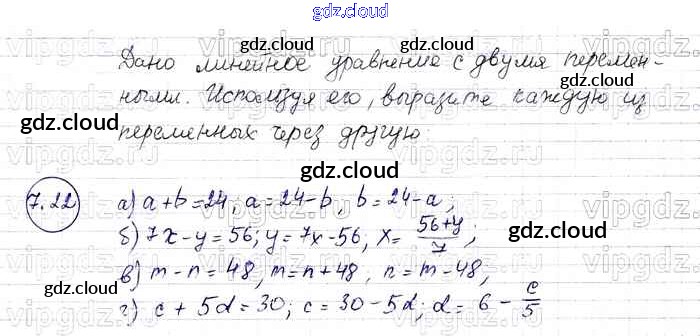 gdz.cloud
gdz.cloud
Дано линейное уравнение с двумя перемен-
gdz.cloud
ными. Используя его, выразите каждую из
gdz.cloud
переменных через другую:
gdz.cloud
7.22 а) a+b=24, a=24-b, b=24-a;
б) 7x-y=56; y=7x-56, x=\frac{56+y}{7};
gdz.cloud
в) m-n=48, m=n+48, n=m-48,
г) c+5d=30; c=30-5d; d=6-\frac{c}{5}
gdz.cloud